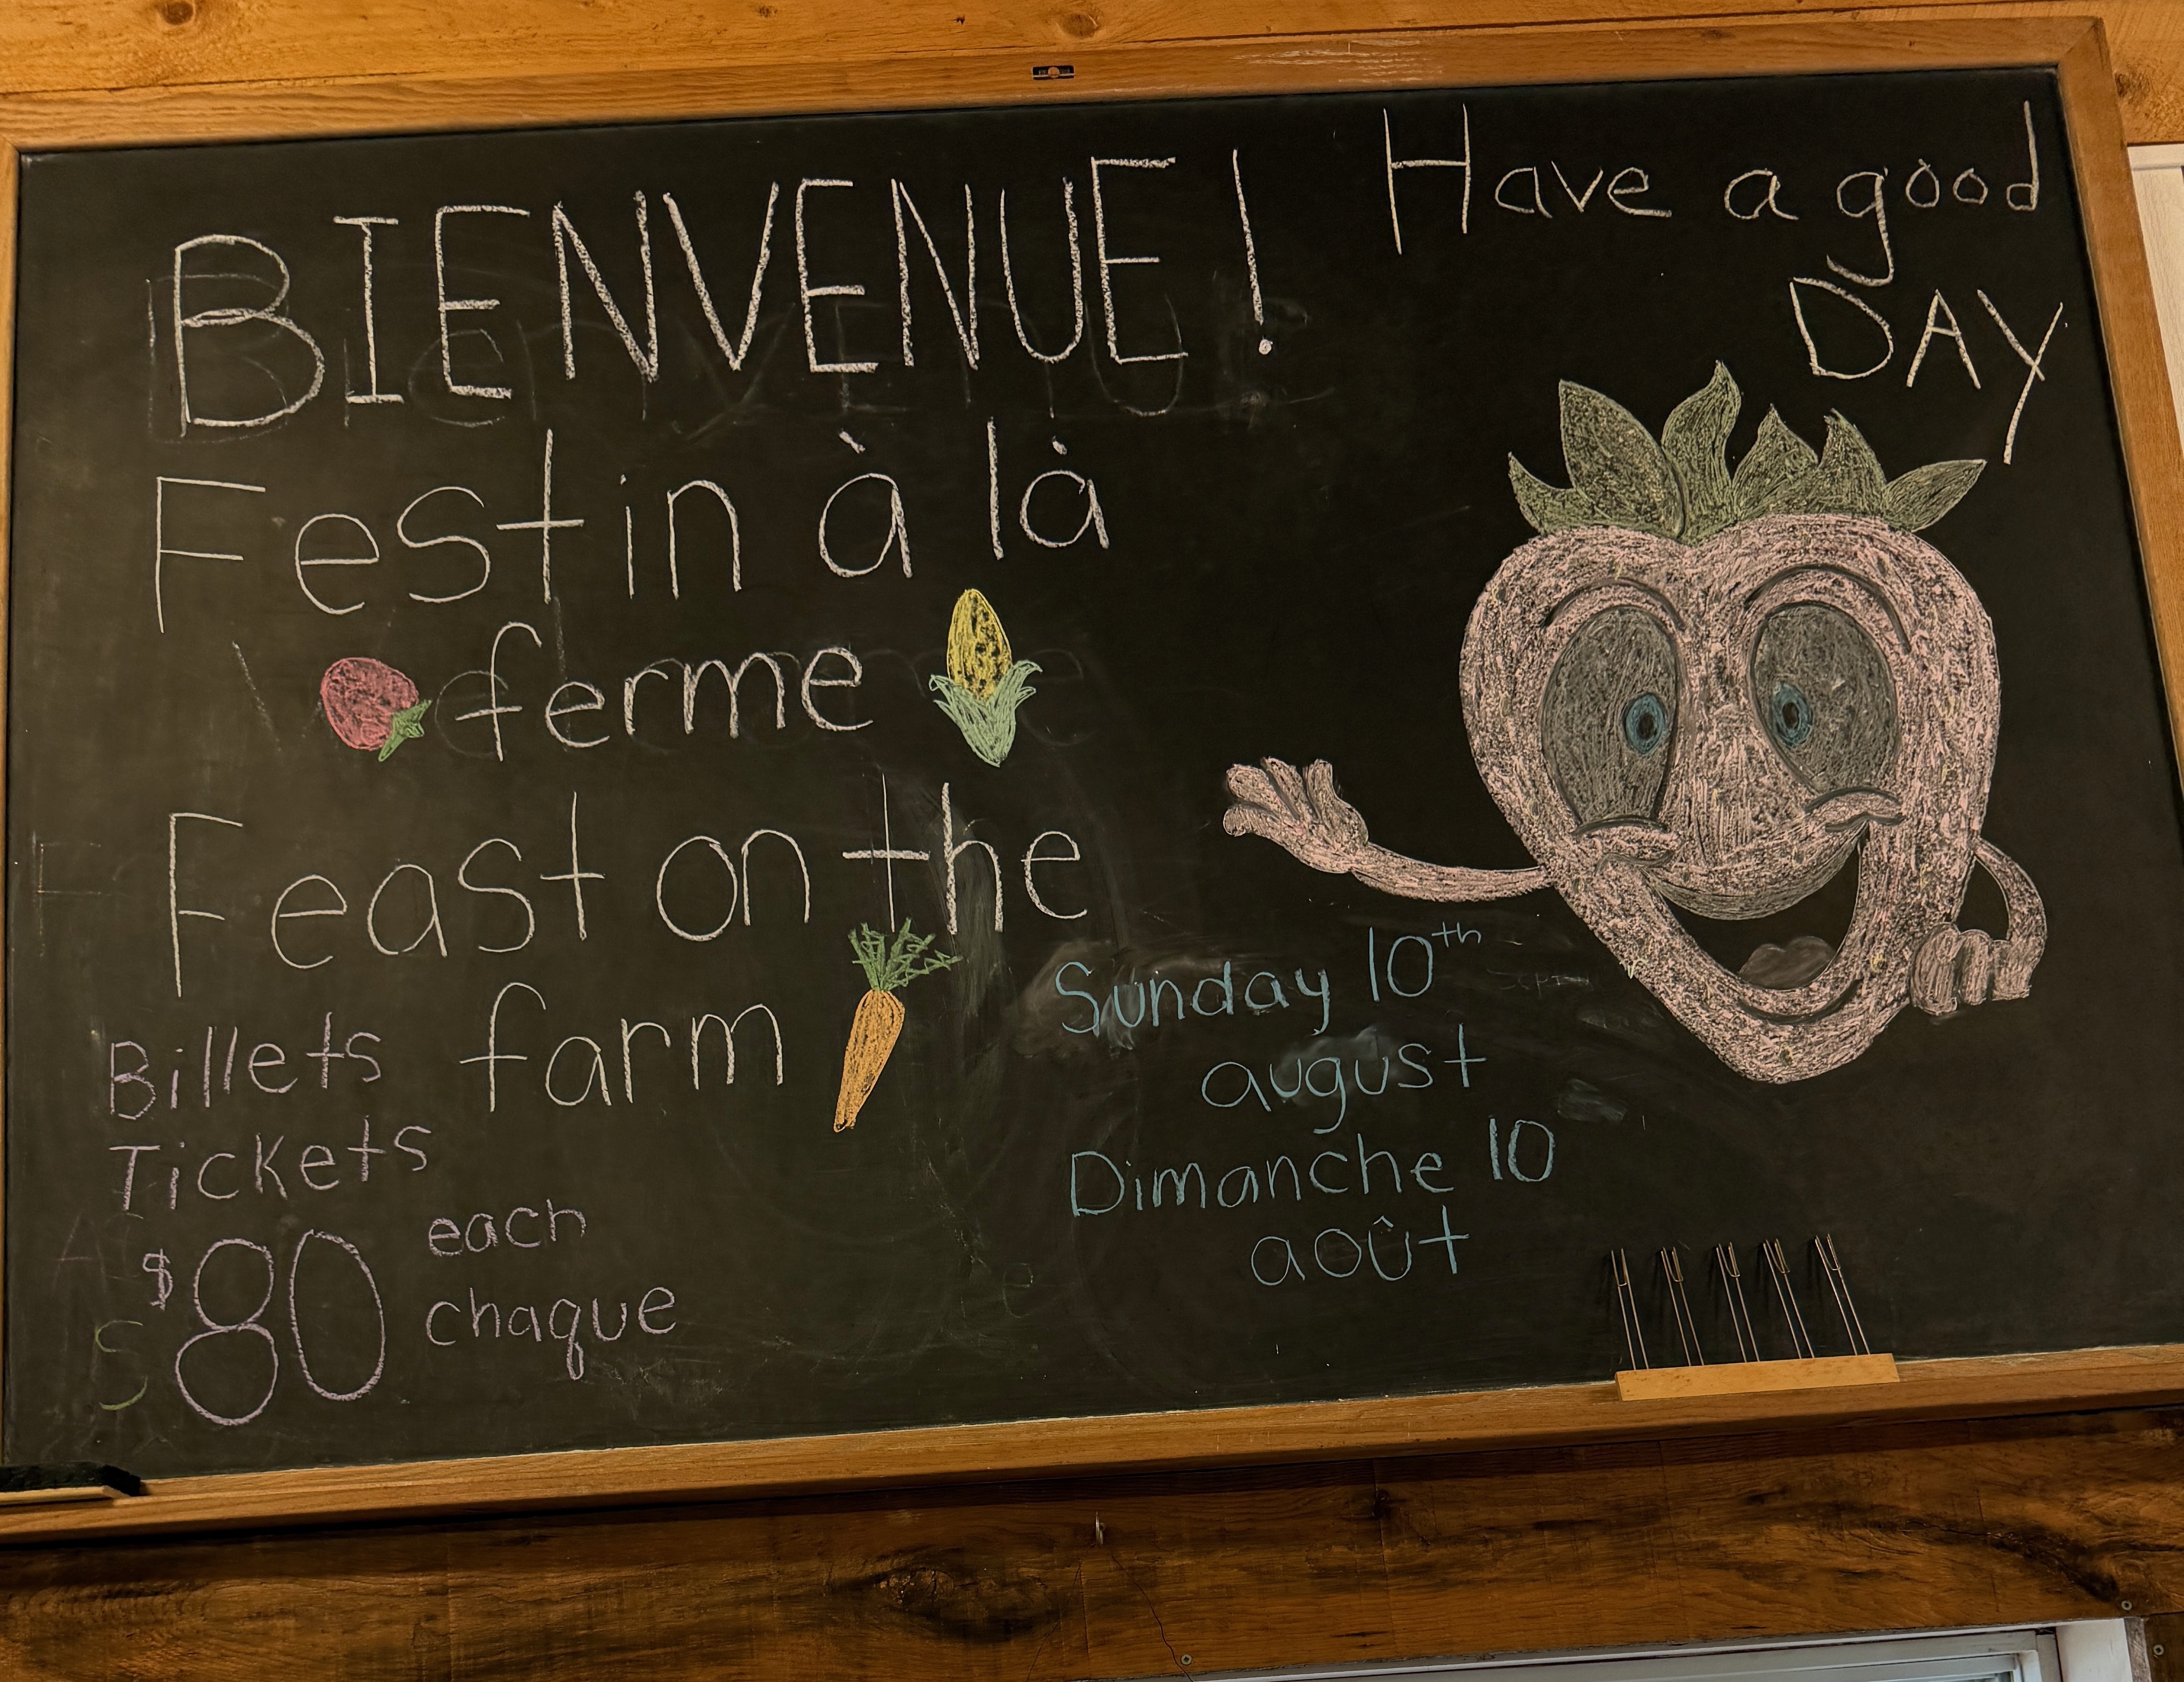 BIENVENUE!
Festin à là
ferme
Feast on the
farm
Billets
Tickets
$80 each
chaque
Have a good
DAY
Sunday 10th
august
Dimanche 10
août